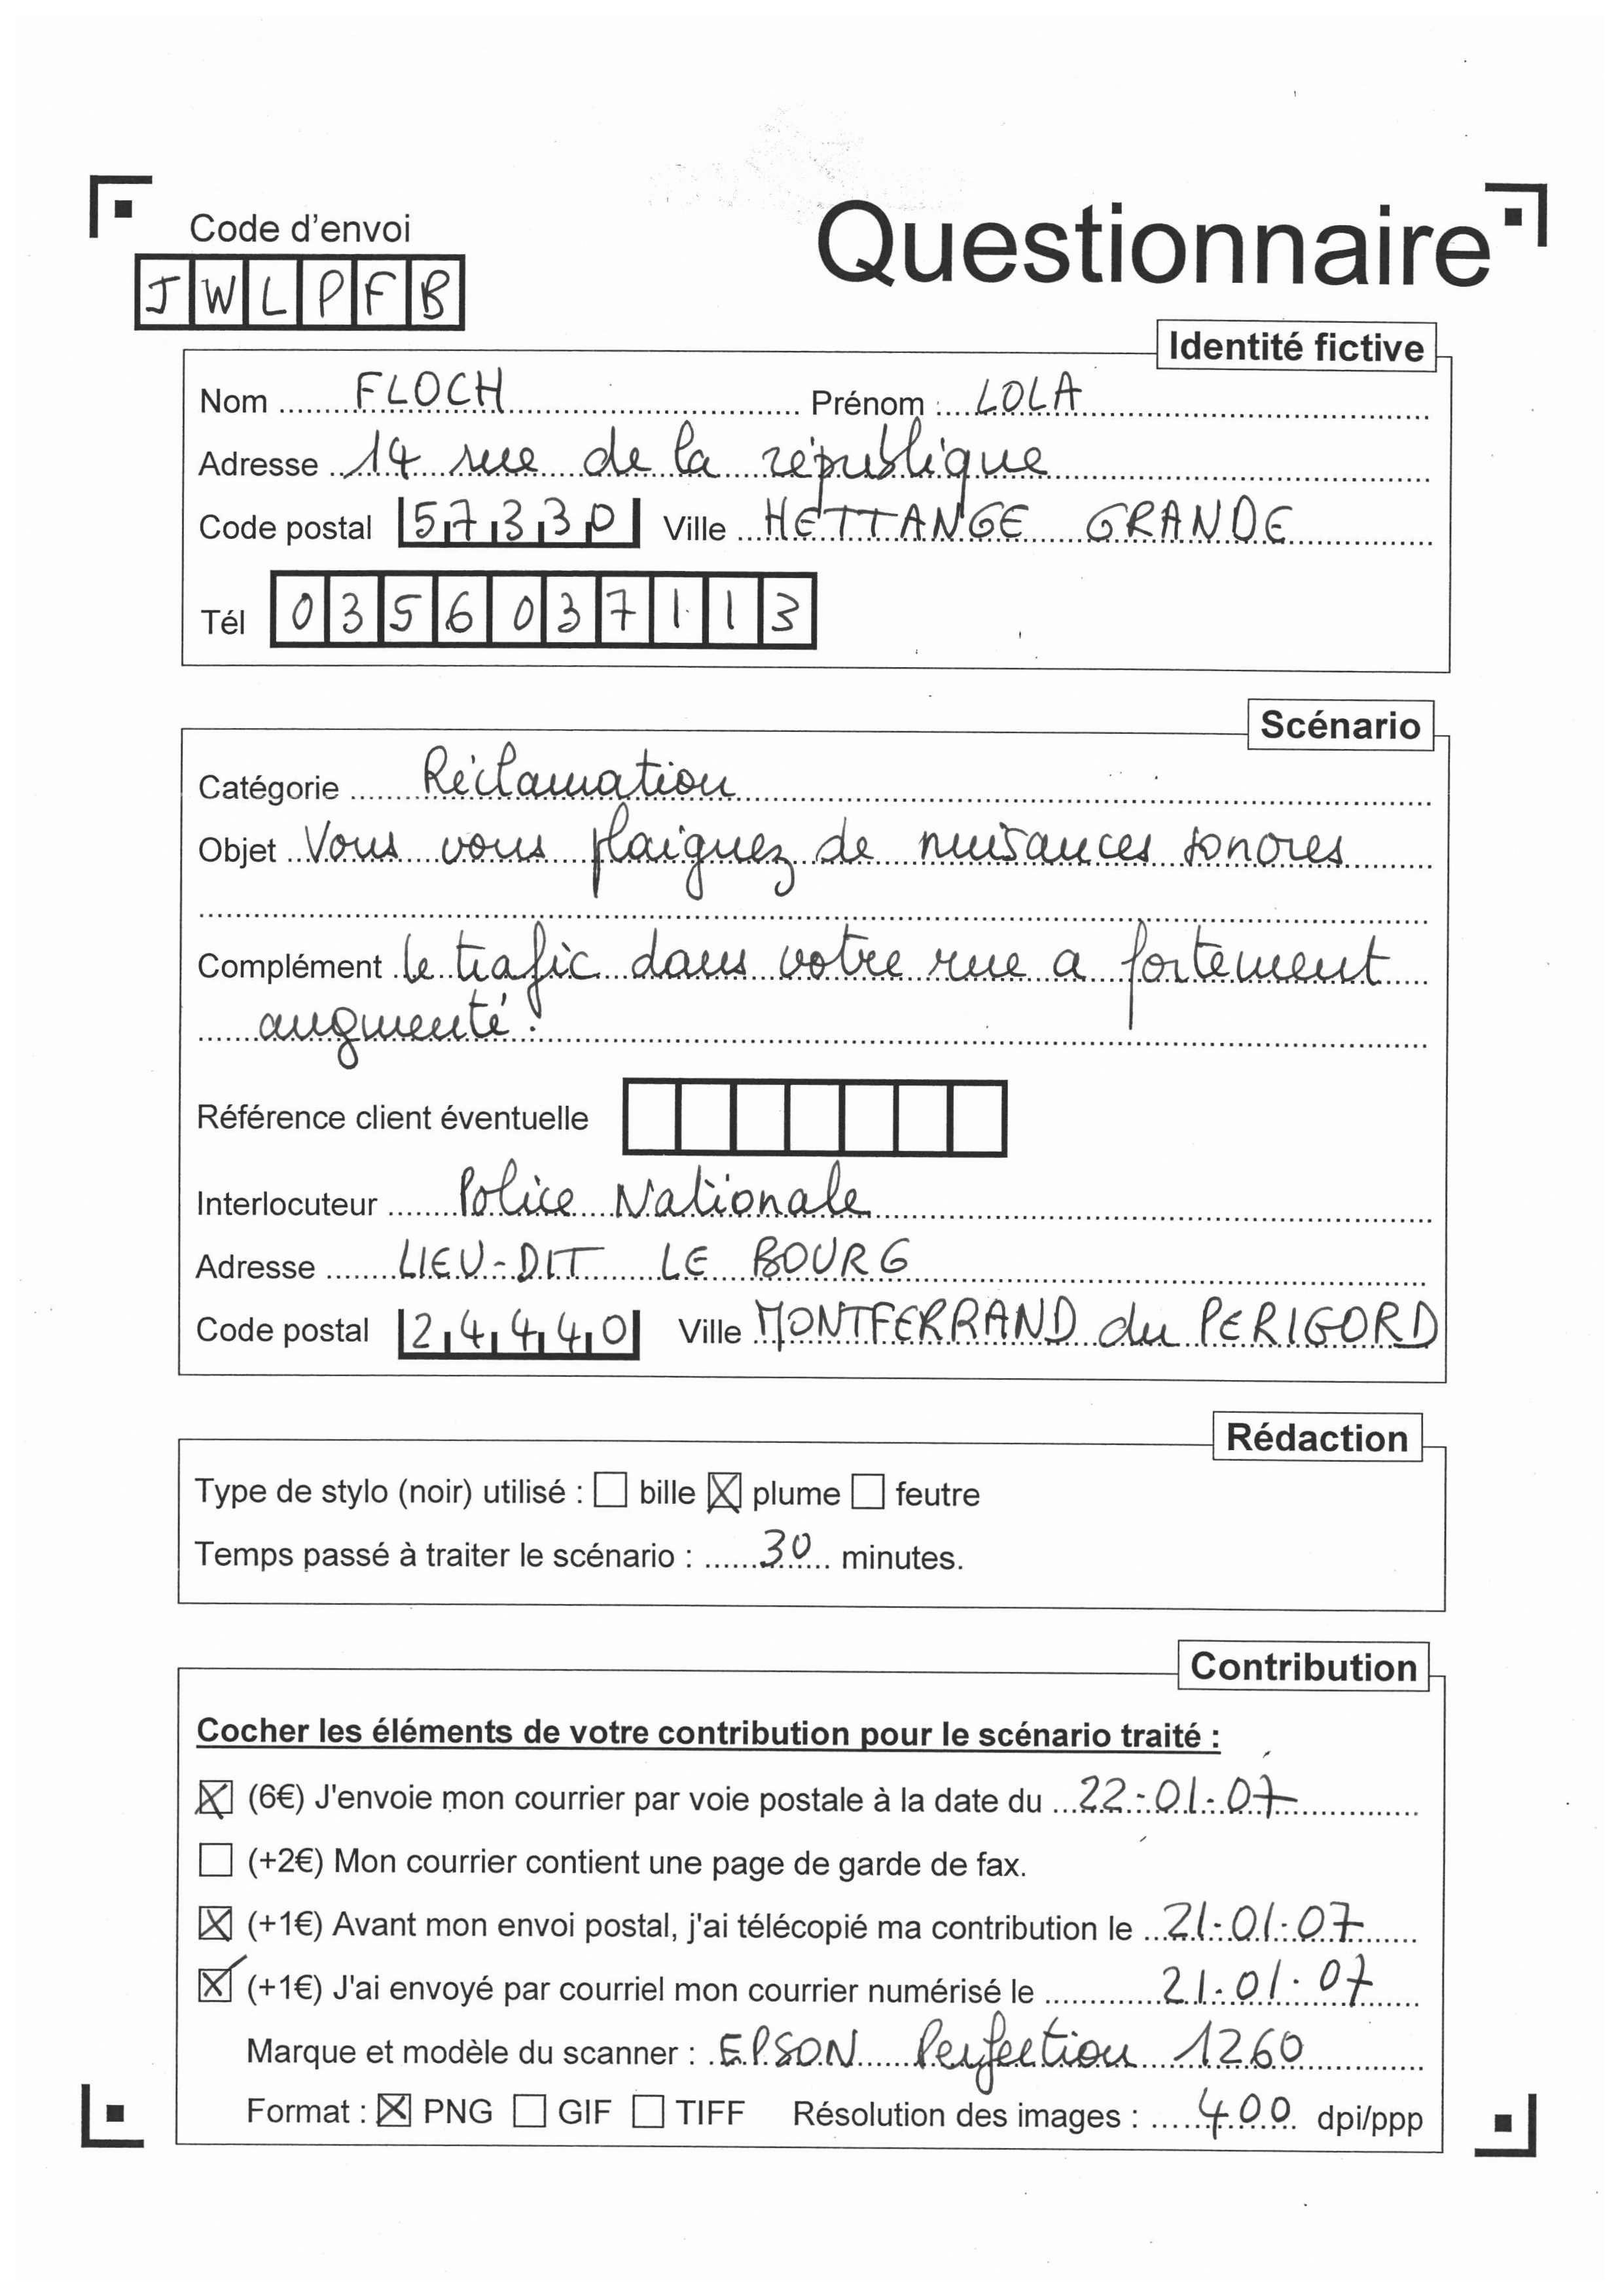 Code d'envoi
Questionnaire
JWLPFB
Identité fictive
Nom FLOCH Prénom : LOLA
Adresse 14 rue de la république
Code postal 57330 Ville HETTANGE GRANDE
Tél 0356037113
Scénario
Catégorie Réclamation
Objet Vous vous plaignez de nuisances sonores
Complément le trafic dans votre rue a fortement
augmenté.
Référence client éventuelle
Interlocuteur Police Nationale
Adresse LIEU-DIT LE BOURG
Code postal 24440 Ville MONTFERRAND du PERIGORD
Rédaction
Type de stylo (noir) utilisé : ☐ bille ☒ plume ☐ feutre
Temps passé à traiter le scénario : 30 minutes.
Contribution
Cocher les éléments de votre contribution pour le scénario traité :
☒ (6€) J'envoie mon courrier par voie postale à la date du 22-01-07
☐ (+2€) Mon courrier contient une page de garde de fax.
☒ (+1€) Avant mon envoi postal, j'ai télécopié ma contribution le 21-01-07
☒ (+1€) J'ai envoyé par courriel mon courrier numérisé le 21-01-07
Marque et modèle du scanner : EPSON Perfection 1260
Format : ☒ PNG ☐ GIF ☐ TIFF Résolution des images : 400 dpi/ppp